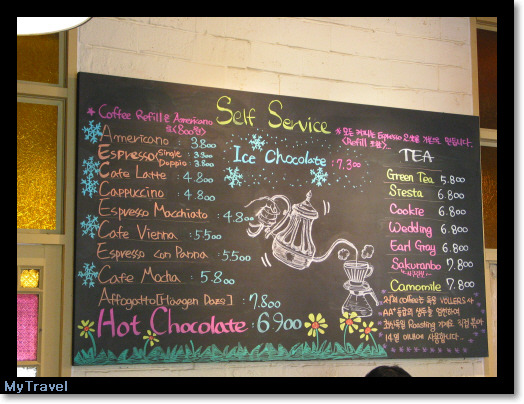 Self Service
* Coffee Refill은 Americano
로 (800원)
Americano : 3.800
Espresso Single : 3.300
Doppio : 3.800
Cafe Latte : 4.800
Cappuccino : 4.800
Espresso Macchiato : 4.800
Cafe Vienna : 5.500
Espresso con Panna : 5.500
Cafe Mocha : 5.800
Affogatto [Häagen Dazs] : 7.800
Hot Chocolate : 6.900
Ice Chocolate : 7.300
* 모든 커피는 Espresso
<Refill 포함>
TEA
Green Tea 5.800
Siesta 6.800
Cookie 6.800
Wedding 6.800
Earl Gray 6.800
Sakuranbo 7.800
Camomile 7.800
저희 coffee는 독일 VOLLERS사
AA+ 등급의 생두를 엄선하여
Roasting 직접 볶아
14일 이내에 사용합니다...
MyTravel